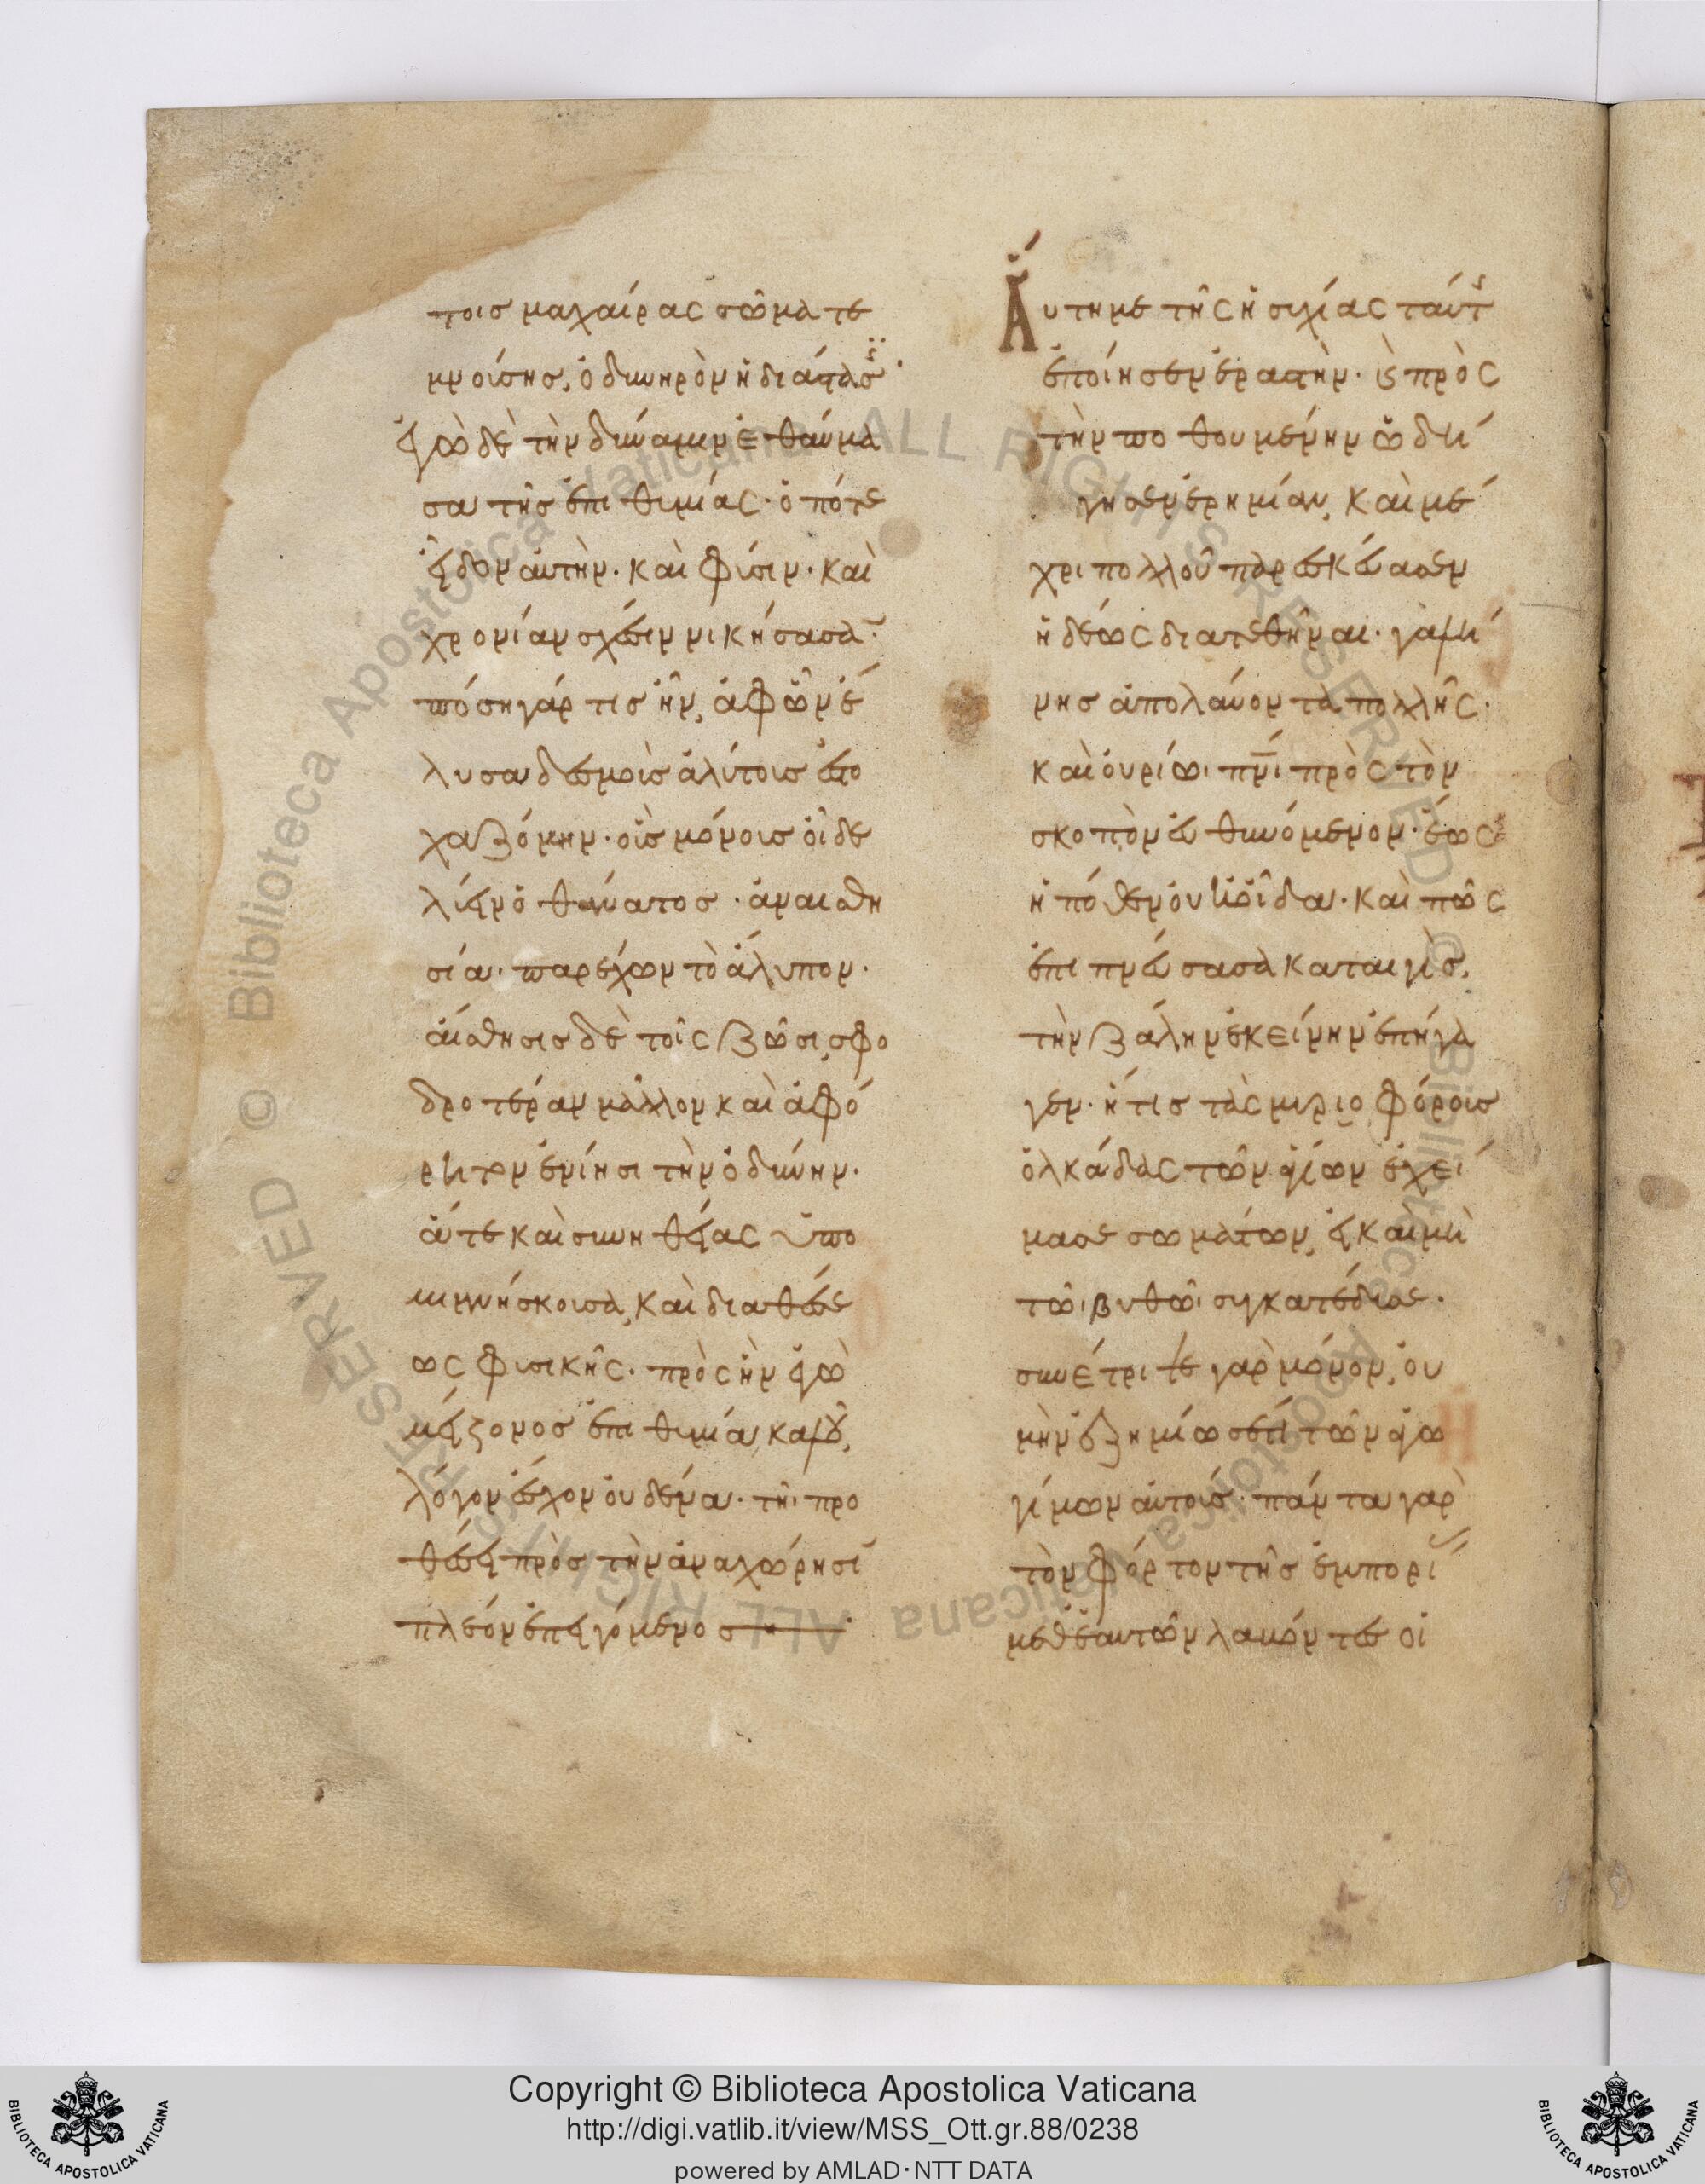 τοισ μαχαίρας σῶμα τε
μνούσης, ὀδυνηρὸν ἡ διάστασϊς·
ἐγὼ δὲ τὴν δύναμιν ἐθαύμα
σα τῆσ ἐπιθυμίας· ὁπότε
εἶδον ἀυτὴν· καὶ φύσιν· καὶ
χρονίαν σχέσιν νικήσασαν·
πόση γάρ τισ ἦν, ἀφῶν ἔ
λυσα δεσμοῖσ ἀλύτοισ ἐστο
χαζόμην· οἷσ μόνοισ οἶδε
λύειν ὁ θάνατοσ· ἀναισθη
σία παρέχων τὸ ἄλυπον·
ἄισθησισ δὲ τοῖς ζῶσι, σφο
δροτέραν μᾶλλον καὶ ἀφό
ρητον ἐνίησι τὴν ὀδύνην·
ἅτε καὶ συνηθείας ὑπο
μιμνήσκουσα, καὶ διαθέσε
ως φυσικῆς· πρὸς ἣν ἐγὼ
μείζονοσ ἐπιθυμία καμοῦ,
λόγον ἔσχον ὀυδένα· τῆι προ
θέσει πρὸσ τὴν ἀναχώρησι
πλέον ἐπειγόμενοσ
Ἄυτη με τῆς ἡσυχίας ταύτης
ἐποίησεν ἐραστὴν· καὶ πρὸς
τὴν ποθουμένην ὡδή
γησεν ἐρημίαν, καὶ μέ
χρι πολλοῦ παρεσκέυασεν
ἡδέως διατεθῆναι· γαλή
νησ ἀπολάυοντα πολλῆς·
καὶ ὀυρίωι πνι πρὸς τὸν
σκοπὸν ἐυθυνόμενον· ἕως
ἢ πόθεν ὀυκ οἶδα· καὶ πῶς
ἐπιπνέυσασα καταιγὶσ,
τὴν ζάλην ἐκείνην ἐπήγα
γεν· ἥτισ τὰς μυριοφόρουσ
ὁλκάδας τῶν ἁγίων ἐχεί
μασε σωμάτων, ἐι καὶ μὴ
τῶι βυθῶι συγκατέδυσε·
συνέτριψε γὰρ μόνον, ὀυ
μὴν ἐζημίωσέ τι τῶν ἀγω
γίμων ἀυτούσ· πάντα γὰρ
τὸν φόρτον τῆσ ἐμπορίασ
μεθ ἑαυτῶν λαβόντεσ οἱ
Copyright © Biblioteca Apostolica Vaticana
http://digi.vatlib.it/view/MSS_Ott.gr.88/0238
powered by AMLAD·NTT DATA
BIBLIOTECA APOSTOLICA VATICANA
BIBLIOTECA APOSTOLICA VATICANA